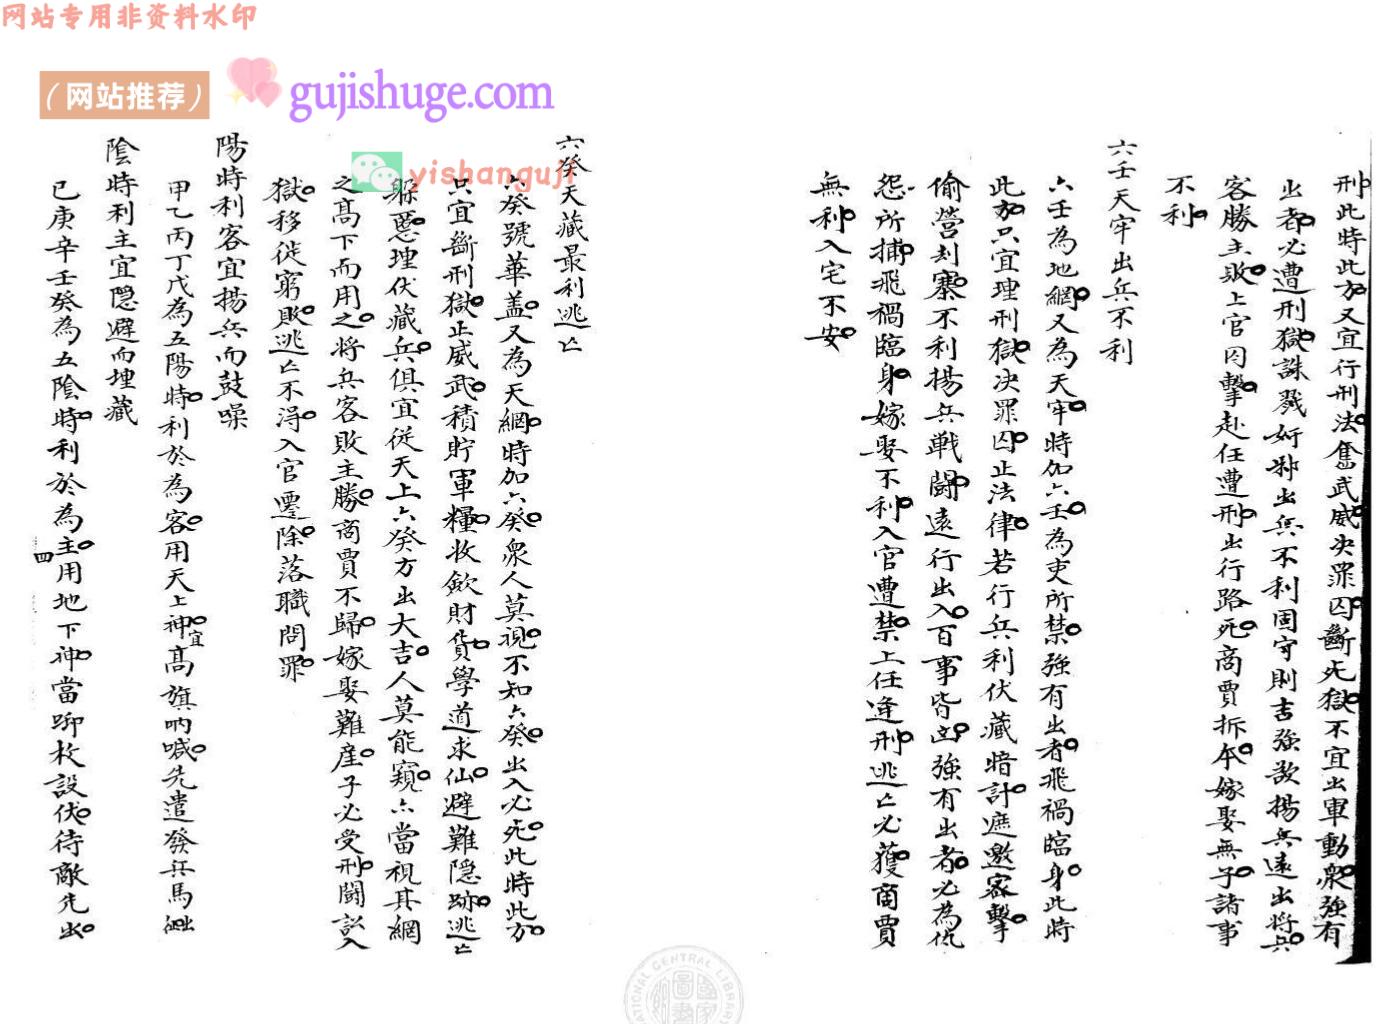 网站专用非资料水印
（网站推荐）
gujishuge.com
yishanguji
刑此時此方又宜行刑法奮武威決罪囚斷死獄不宜出軍動衆強有
出者必遭刑獄誅戮奸邪出兵不利固守則吉強敵揚兵遠出将兵
客勝主敗上官囚擊赴任遭刑出行路死商賈拆本嫁娶無子諸事
不利
六壬天牢出兵不利
六壬為地網又為天牢時加六壬為吏所禁強有出者飛禍臨身此時
此方只宜理刑獄决罪囚止法律若行兵利伏藏暗計遮邀客擊
偷營刦寨不利揚兵戰鬭遠行出入百事皆凶強有出者必為仇
怨所捕飛禍臨身嫁娶不利入官遭禁上任逢刑逃亡必獲商賈
無利入宅不安
六癸天藏最利逃亡
六癸號華盖又為天網時加六癸衆人莫視不知六癸出入必死此時此方
只宜斷刑獄止威武積貯軍糧收歛財貨學道求仙避難隐跡逃亡
躲惡埋伏藏兵俱宜從天上六癸方出大吉人莫能窺六當視其網
之髙下而用之将兵客敗主勝商賈不歸嫁娶難産子必受刑鬪訟入
獄移徙窮敗逃亡不淂入官遷除落職問罪
陽時利客宜揚兵而鼓噪
甲乙丙丁戊為五陽時利於為客用天上神宜髙旗吶喊先遣發兵馬
陰時利主宜隠避而埋藏
已庚辛壬癸為五陰時利於為主用地下神當啣枚設伏待敵先出
四
NATIONAL CENTRAL LIBRARY
國家圖書館